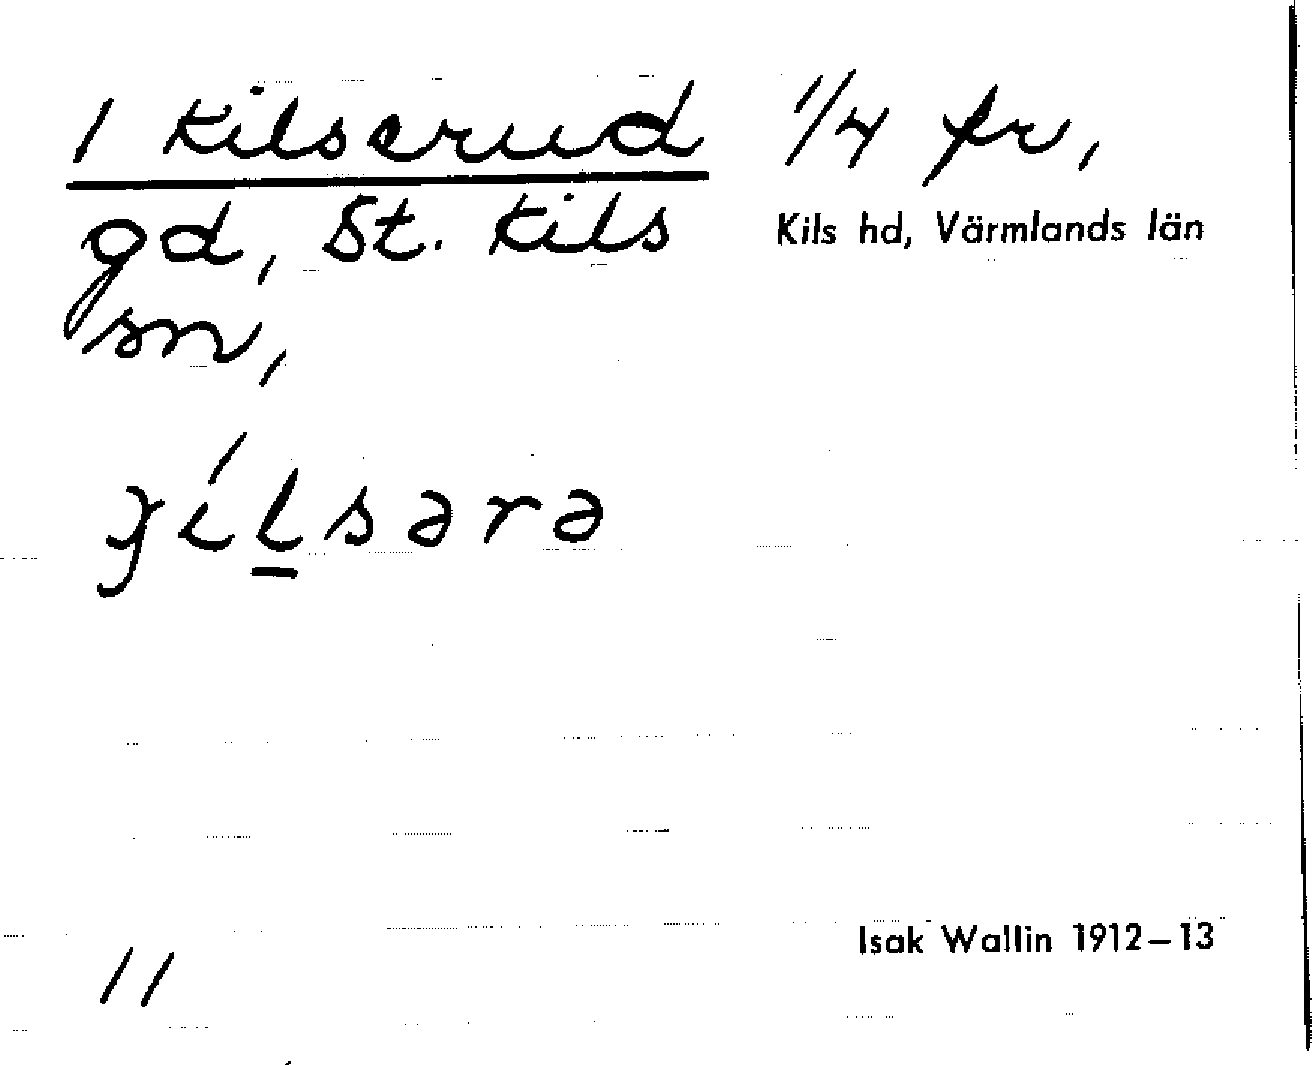 1 Kilserud 1/4 fr,
gd, St. Kils
Kils hd, Värmlands län
sn,
ɟílsərə
Isak Wallin 1912–13
11